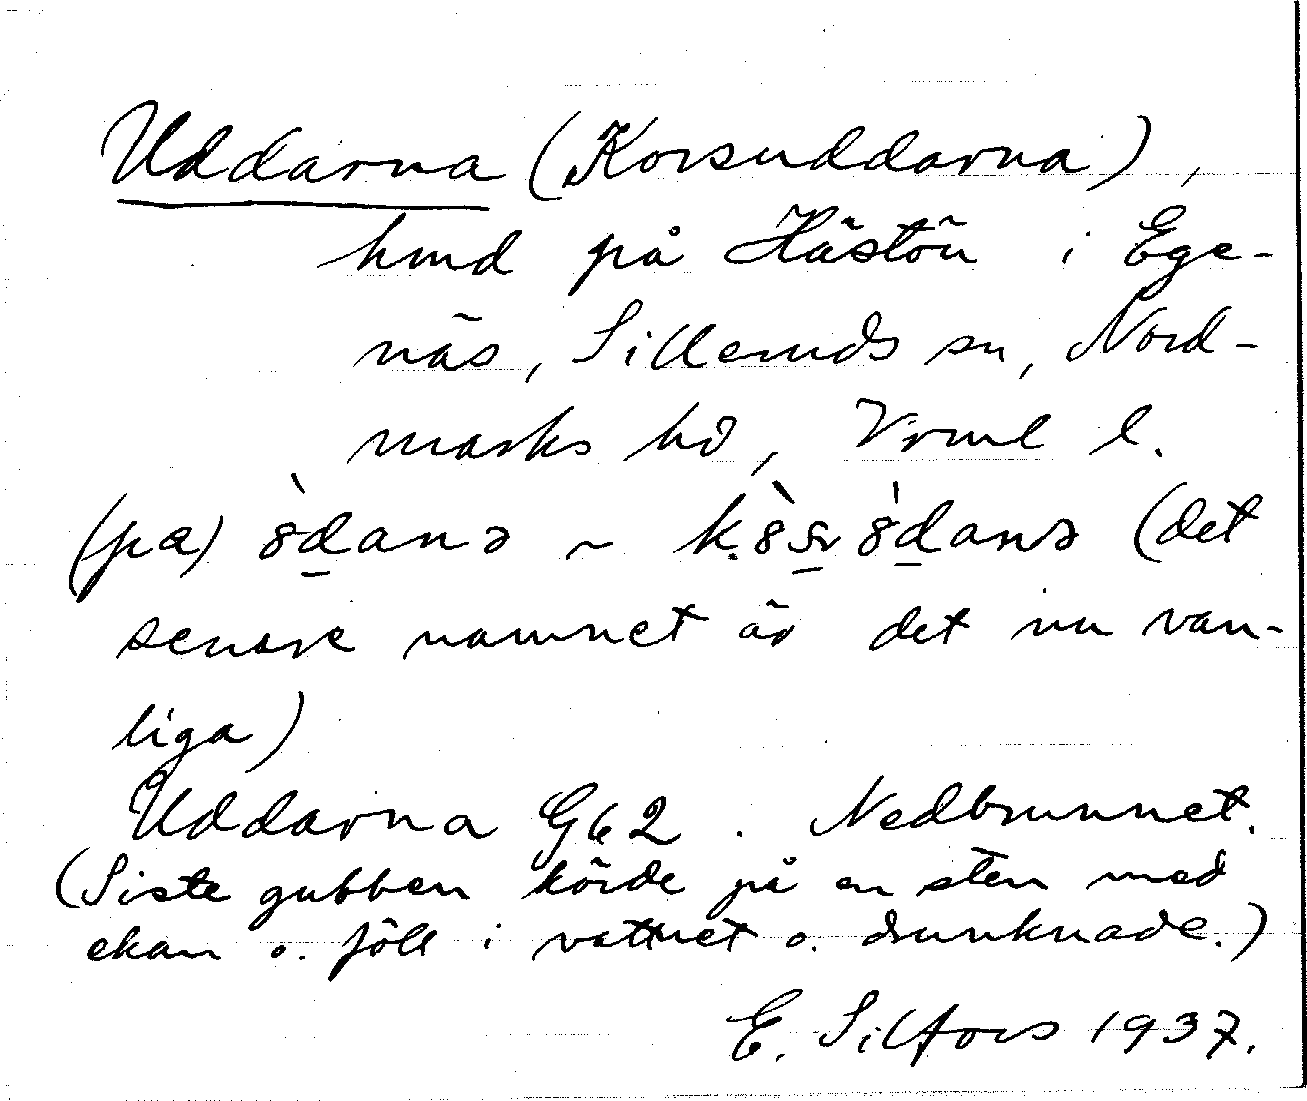 Uddarna (Korsuddarna),
hmd på Hästön i Ege-
näs, Silleruds sn, Nord-
marks hd, Vrml l.
(pa) 8̀d̲anə ~ k8̀s̲r8̍d̲anə (det
senare namnet är det nu van-
liga)
Uddarna G62. Nedbrunnet.
(Siste gubben körde på en sten med
ekan o. föll i vattnet o. drunknade.)
E. Silfors 1937.